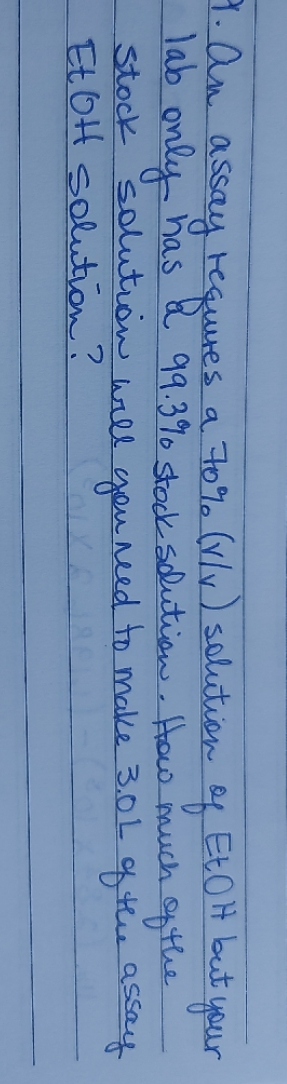 9. An assay requires a 70% (v/v) solution of EtOH but your
lab only has a 99.3% stock solution. How much of the
stock solution will you need to make 3.0L of the assay
EtOH solution?